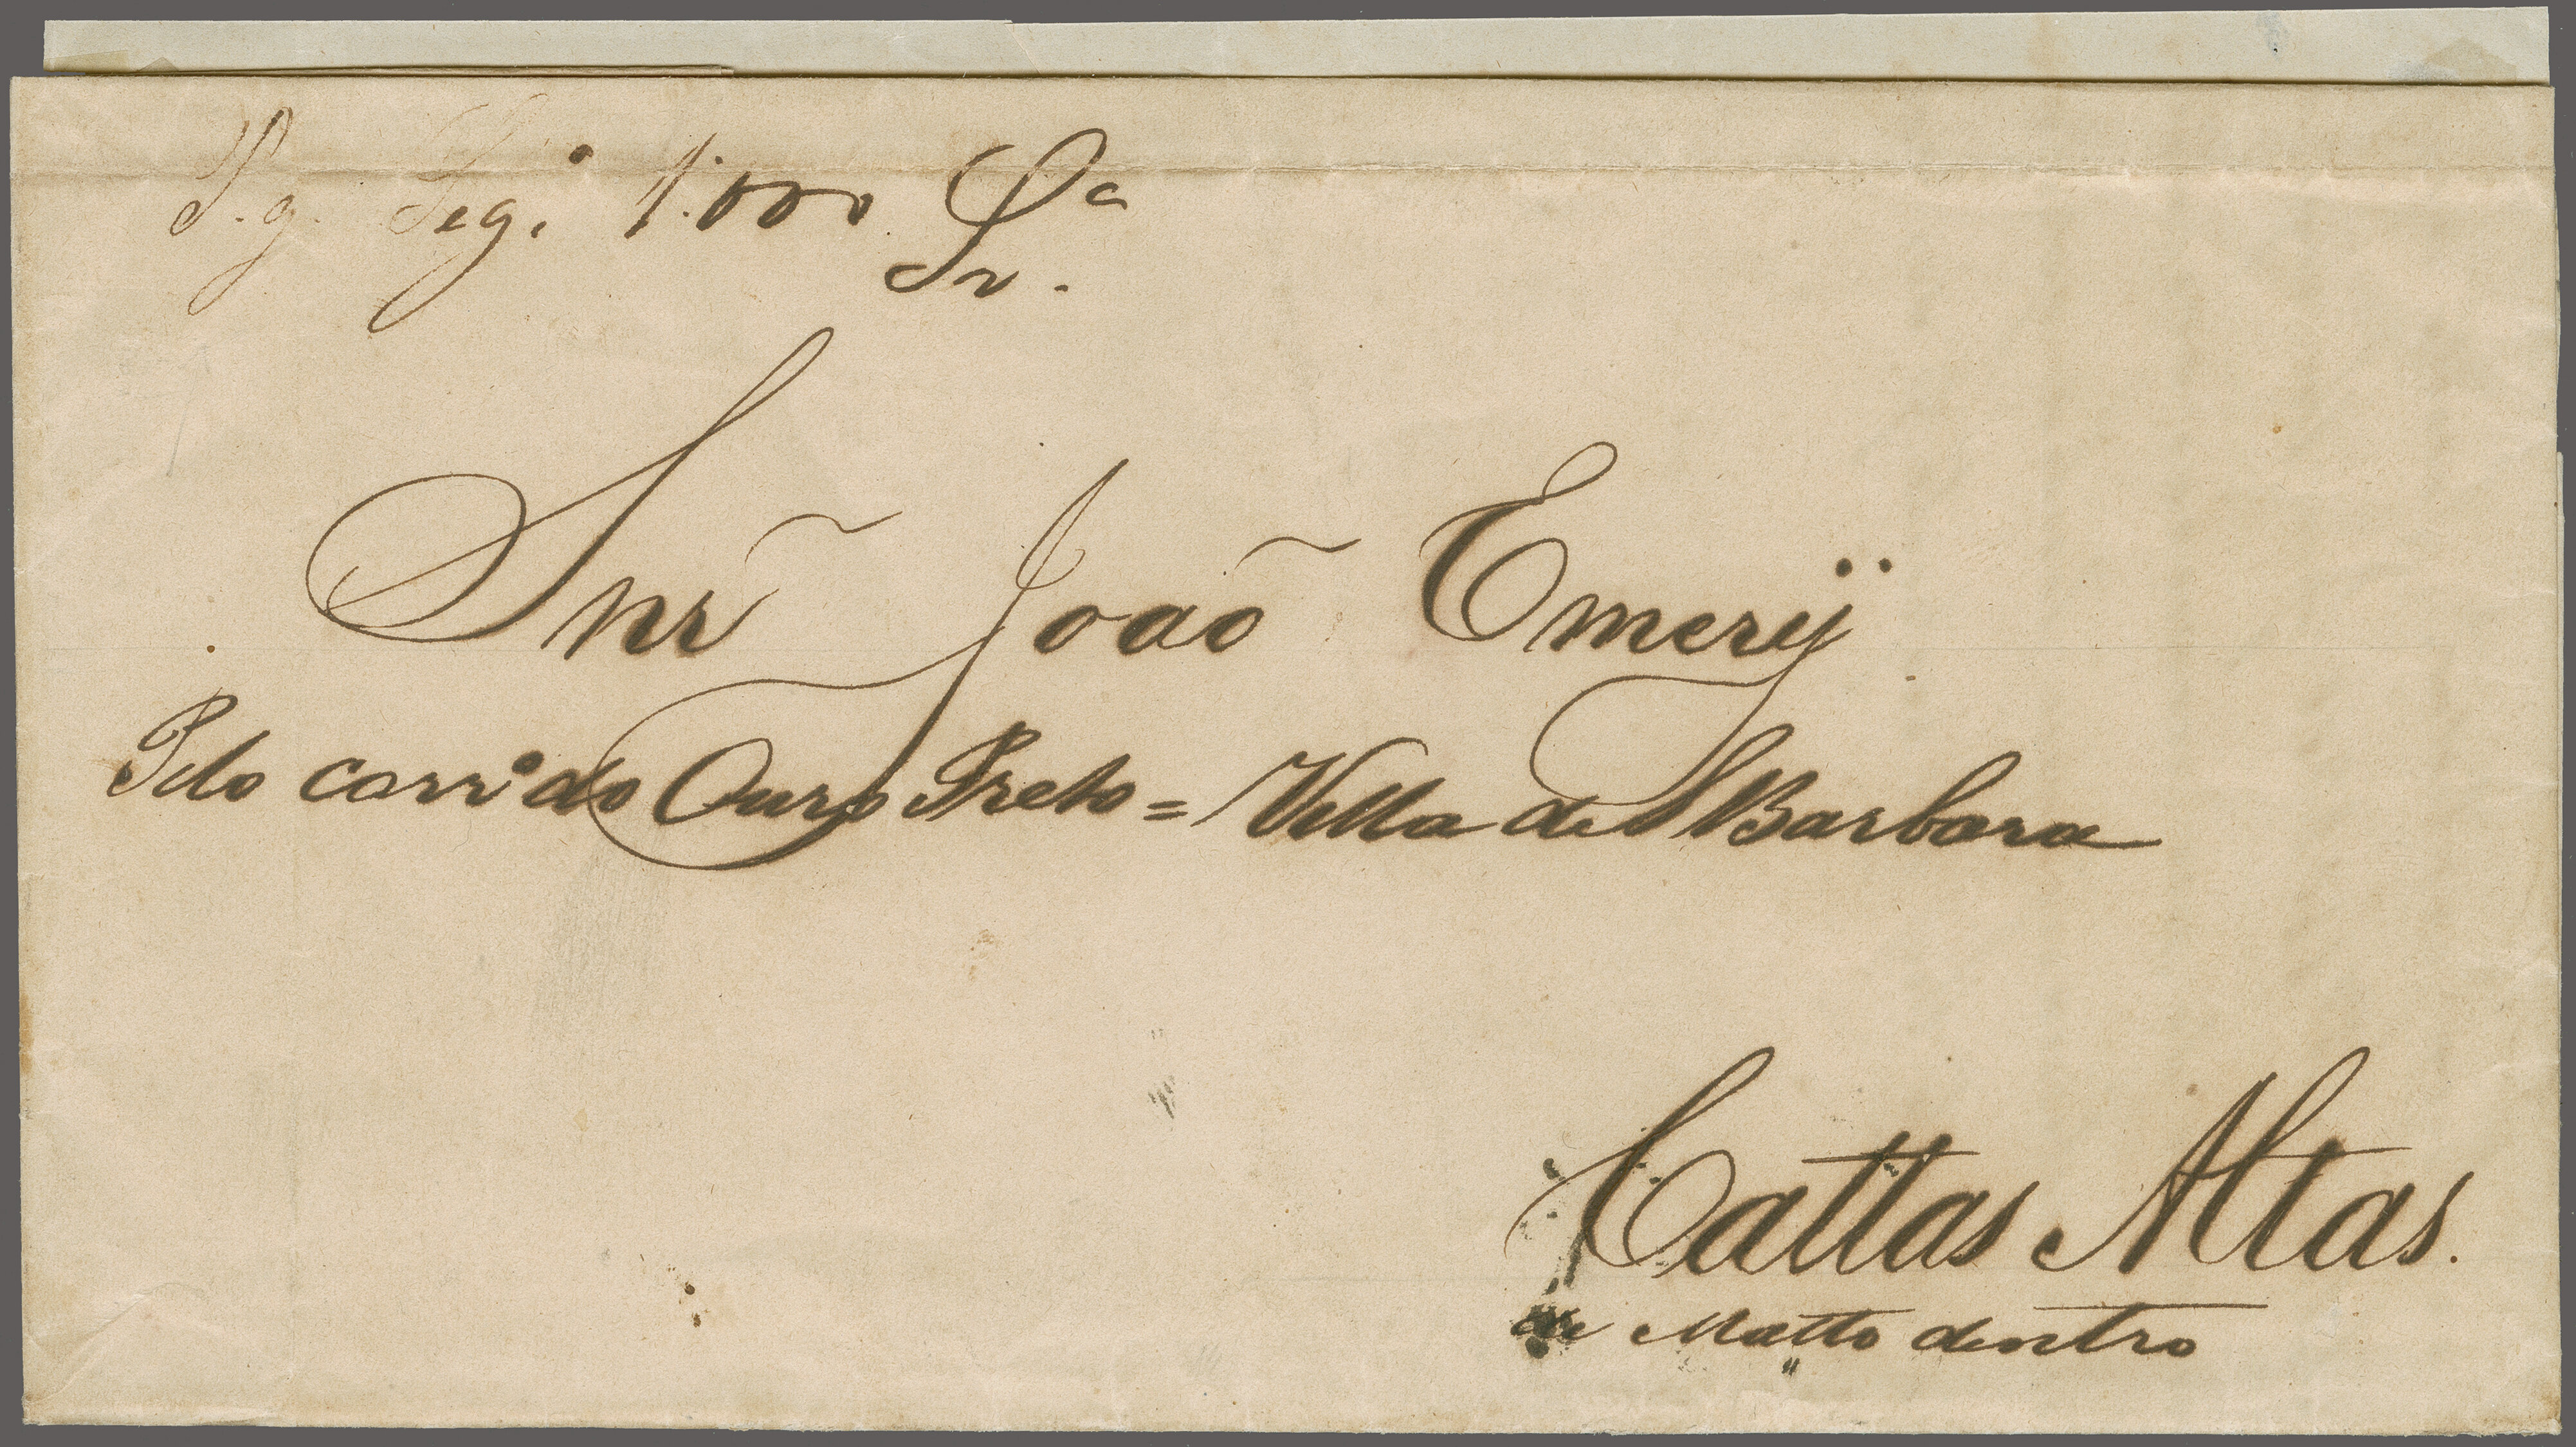 P.g. Seg. 1.000 
Snr̃ Joaõ Emerÿ
Pelo corr.º do Ouro Preto = Villa de S Barbara
Cattas Altas.
de Matto dentro